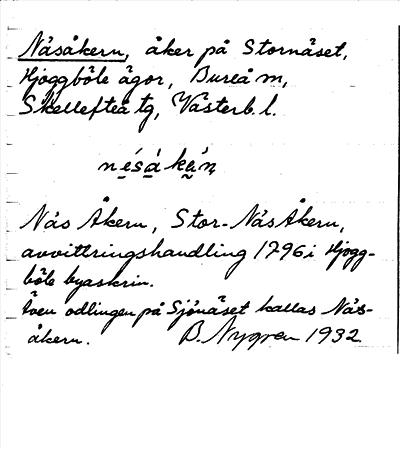 Näsåkern, åker på Stornäset,
Hjoggböle ägor, Bureå sn,
Skellefteå tg, Västerb. l.
Näs Åkern, Stor-NäsÅkern,
avvittringshandling 1796 i Hjogg-
böle byaskrin.
Även odlingen på Sjönäset kallas Näs-
åkern. B. Nygren 1932